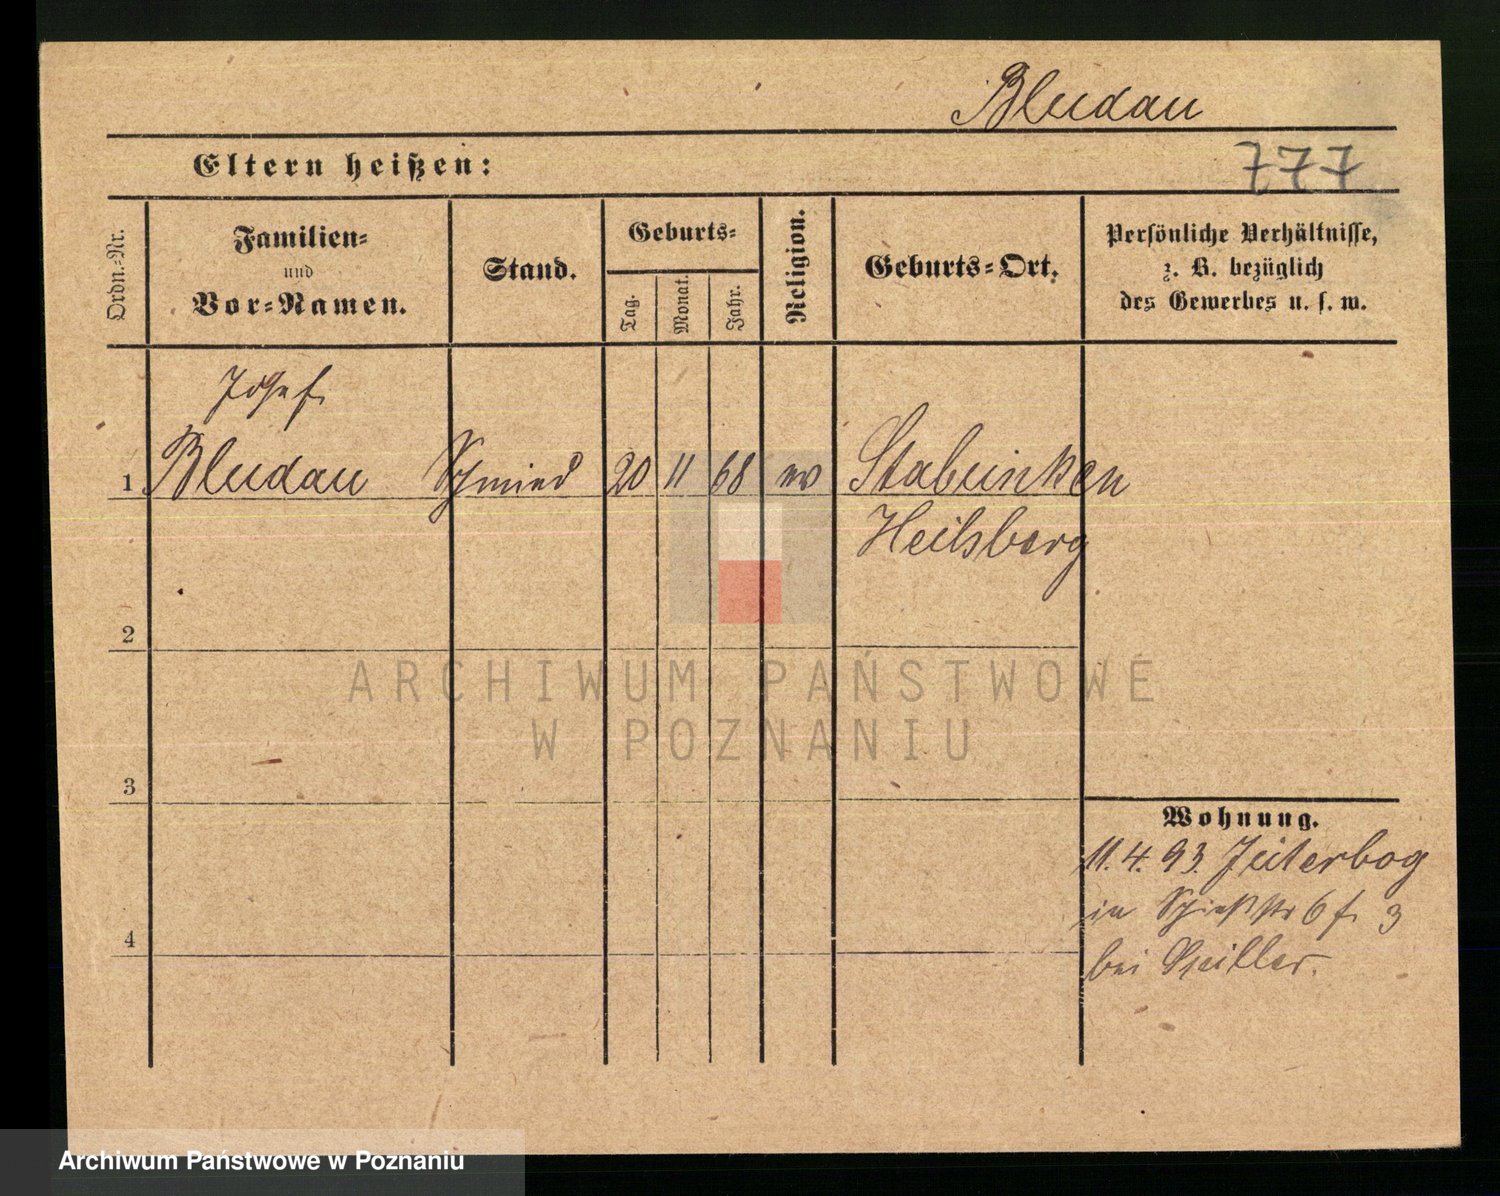 Bludau
Eltern heißen:
777
Ordn.-Nr.
Familien-
und
Vor-Namen.
Stand.
Geburts-
Tag.
Monat.
Jahr.
Religion.
Geburts-Ort.
Persönliche Verhältnisse,
z. B. bezüglich
des Gewerbes u. s. w.
Josef
1 Bludau Schmied 20 11 68 ev Stabunken
Heilsberg
2
ARCHIWUM PAŃSTWOWE
W POZNANIU
3
Wohnung.
11. 4. 93. Jüterbog
in 6 f. 3
4
bei
Archiwum Państwowe w Poznaniu